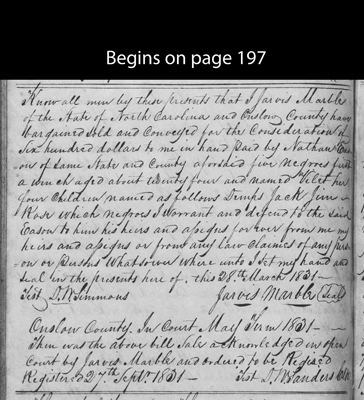 Begins on page 197
Know all men by these presents that I Jarvis Marble
of the State of North Carolina and Onslow County have
bargained Sold and Conveyed for the Consideration of
Six hundred dollars to me in hand paid by Nathan
of same State and County aforesaid five negroes first
a wench aged about twenty four and named Vilet her
four Children named as follows Jack Jim
Rose which negroes I Warrant and defend to the said
Eason to him his heirs and assigns forever from me my
heirs and assigns or from any law Claimes of any
on or Persons Whatsoever where unto I Set my hand and
Seal in the presents here of, this 28th March 1831
Test D. W. Simmons Jarvis Marble (Seal)
Onslow County. In Court May Term 1831
Then was the above bill Sale acknowledged in open
Court by Jarvis Marble and ordered to be
Registered 27th Sept. 1831 Test D. W. Sanders